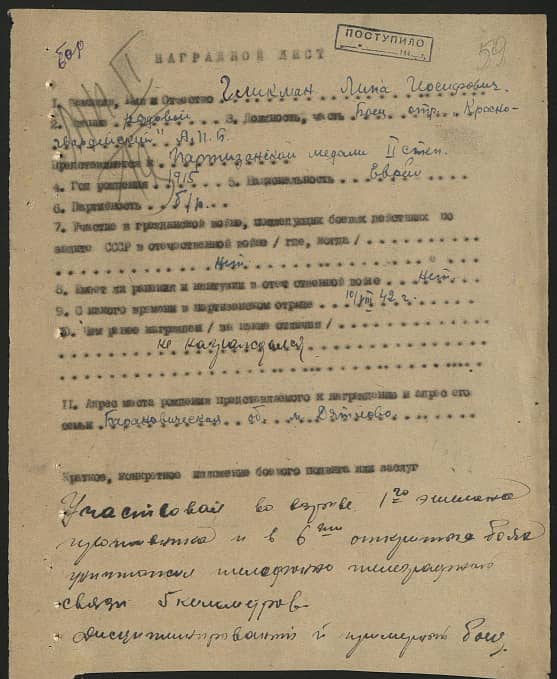 ПОСТУПИЛО
59
НАГРАДНОЙ ЛИСТ
1. Фамилия, Имя и Отчество Гликман Липа Иосифович.
2. Звание рядовой 3. Должность, часть Боец отр. Красно-
гвардейский" А.П.Б
Представляется к Партизанской медали II степ.
4. Год рождения 1915 5. Национальность Еврей
6. Партийность б/п.
7. Участие в гражданской войне, последующих боевых действиях по
защите СССР в отечественной войне / где, когда /
Нет
8. Имеет ли ранения и контузии в отечественной войне Нет.
9. С какого времени в партизанском отряде 10/VIII 42 г.
10. Чем ранее награжден / за какие отличия /
не награждался
II. Адрес места рождения представляемого к награждению и адрес его
семьи Барановическая об м. Дятлово
Краткое, конкретное изложение боевого подвига или заслуг
Участвовал во взрыве 1го эшелона
противника и в 6ти открытых боях
телефонно телеграфной
связи 5 километров.
Дисциплинированный и примерный боец.